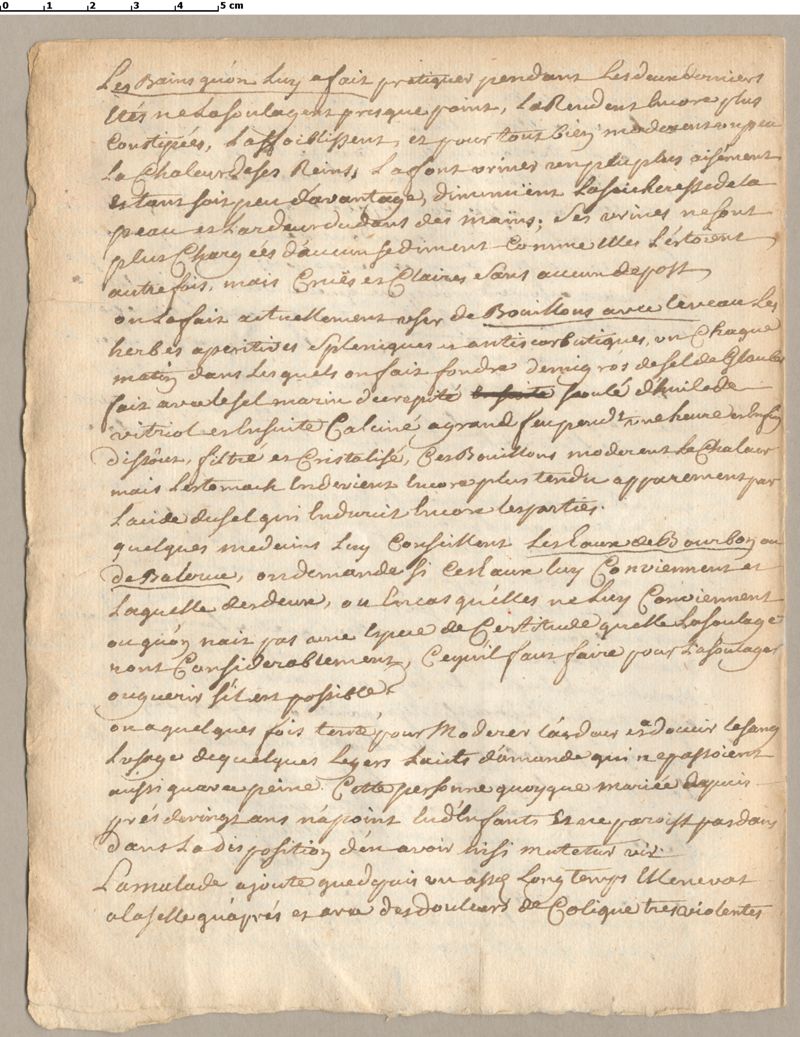 0 1 2 3 4 5 cm
Les Bains qu'on Luy a fait pratiquer pendant Les deux derniers
Etés ne La soulagent presque point, La Rendent Encore plus
Constipée, L'affoiblissent, et pour tout bien moderent un peu
La Chaleur de ses Reins, La font uriner un peu plus aisement
et tant soit peu d'avantage, diminuënt La secheresse de la
peau et L'ardeur du dans des mains; Ses urines ne sont
plus Chargées d'aucun sediment Comme Elles L'estoient
autre fois, mais Cruës et Claires Sans aucun depost,
on La fait actuellement user de Bouillons avec le veau Les
herbes aperitives Spleniques et antiscorbutiques, un Chaque
matin dans Lesquels on fait fondre demi gros de sel de Glauber
fait avec le sel marin decrepité soulé d'huile de
vitriol et Ensuite Calciné a grand feu pend.t une heure et Enfin
dissout, filtré et Cristalisé, Ces Bouillons moderent La Chaleur
mais L'estomach En devient Encore plus tendu apparement par
L'acide du sel qui Endurcit Encore Les parties.
quelques medecins Luy Conseillent Les Eaux de Bourbon ou
de Baleruc, on demande si Ces Eaux luy Conviennent et
Laquelle des deux, ou En cas qu'elles ne Luy Conviennent
ou qu'on n'ait pas une Espece de Certitude qu'elle La soulage
ront Considerablement, Ce qu'il faut faire pour La soulager
ou guerir s'il est possible?
on a quelques fois tenté pour Moderer L'ardeur et adoucir le sang
L'usage de quelques Legers Laits d'amande qui ne passoient
aussi qu'avec peine. Cette personne quoyque mariée depuis
prés de vingt ans n'a point Eu d'Enfants Et ne paroist pas dans
dans La disposition d'en avoir nisi mutetur vir.
La malade ajoute que depuis un assez Long temps Elle ne vat
a la selle qu'aprés et avec des douleurs de Colique tres violentes